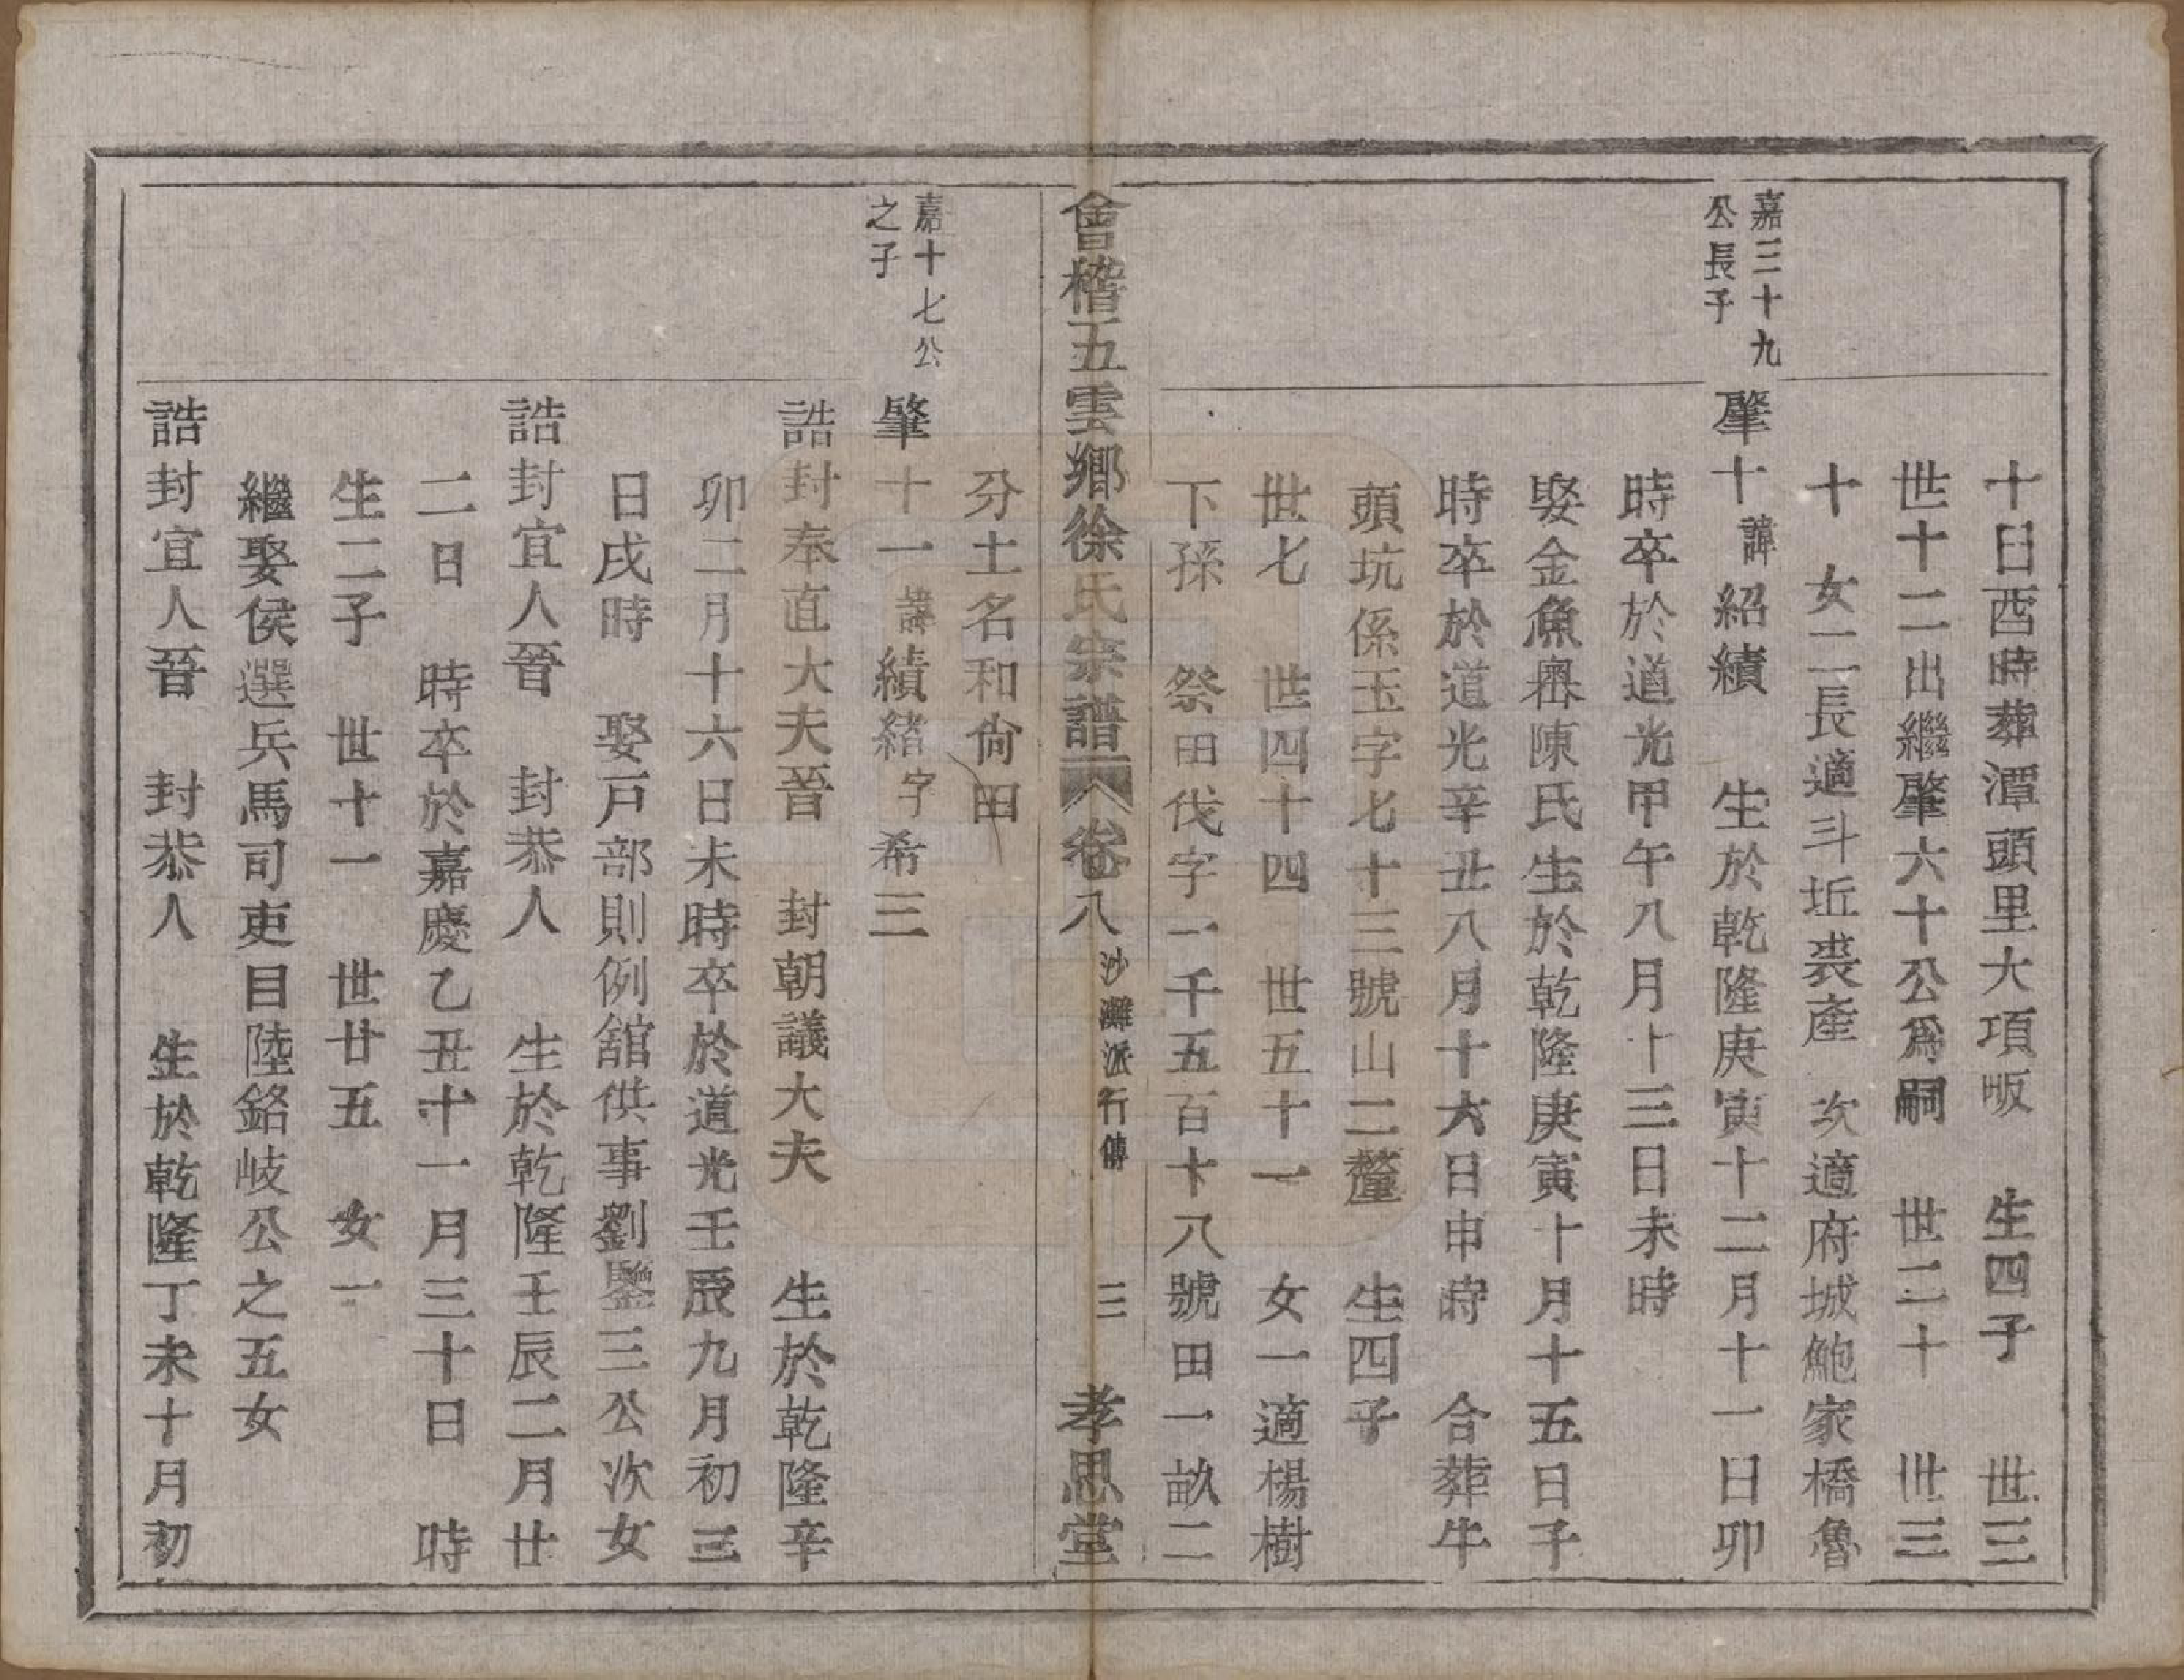 十日酉時葬潭頭里大項畈　生四子　世三
世十二出繼肇六十公爲嗣　世二十　世三
十　女二長適斗坵裘產　次適府城鮑家橋魯
嘉三十九
公長子
肇十諱紹績　生於乾隆庚寅十二月十一日卯
時卒於道光甲午八月十三日未時
娶金魚嶴陳氏生於乾隆庚寅十月十五日子
時卒於道光辛丑八月十六日申時　合葬牛
頭坑係玉字七十三號山二釐　生四子
世七　世四十四　世五十一　女一適楊樹
下孫　祭田伐字一千五百十八號田一畝二
會稽五雲鄉徐氏宗譜　卷八　沙灘派行傳　三　孝思堂
分土名和尙田
嘉十七公
之子
肇十一諱績緒字希三
誥封奉直大夫晉　封朝議大夫　生於乾隆辛
卯二月十六日未時卒於道光壬辰九月初三
日戌時　娶戸部則例舘供事劉鑒三公次女
誥封宜人晉　封恭人　生於乾隆壬辰二月廿
二日　時卒於嘉慶乙丑十一月三十日　時
生二子　世十一　世廿五　女一
繼娶侯選兵馬司吏目陸銘岐公之五女
誥封宜人晉　封恭人　生於乾隆丁未十月初